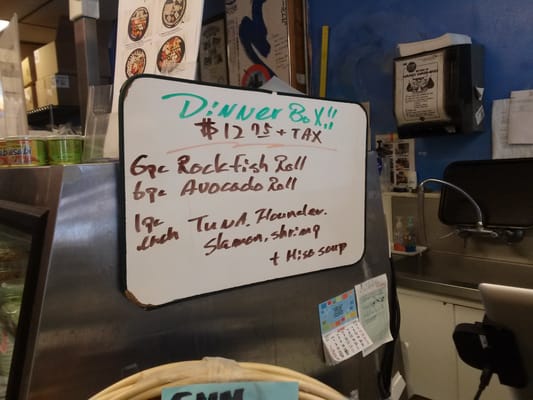 DINNER BOX!!
$12.75 + TAX
6pc Rockfish Roll
6pc Avocado Roll
1pc each Tuna. Flounder.
Slamon. shring
+ Miso soup